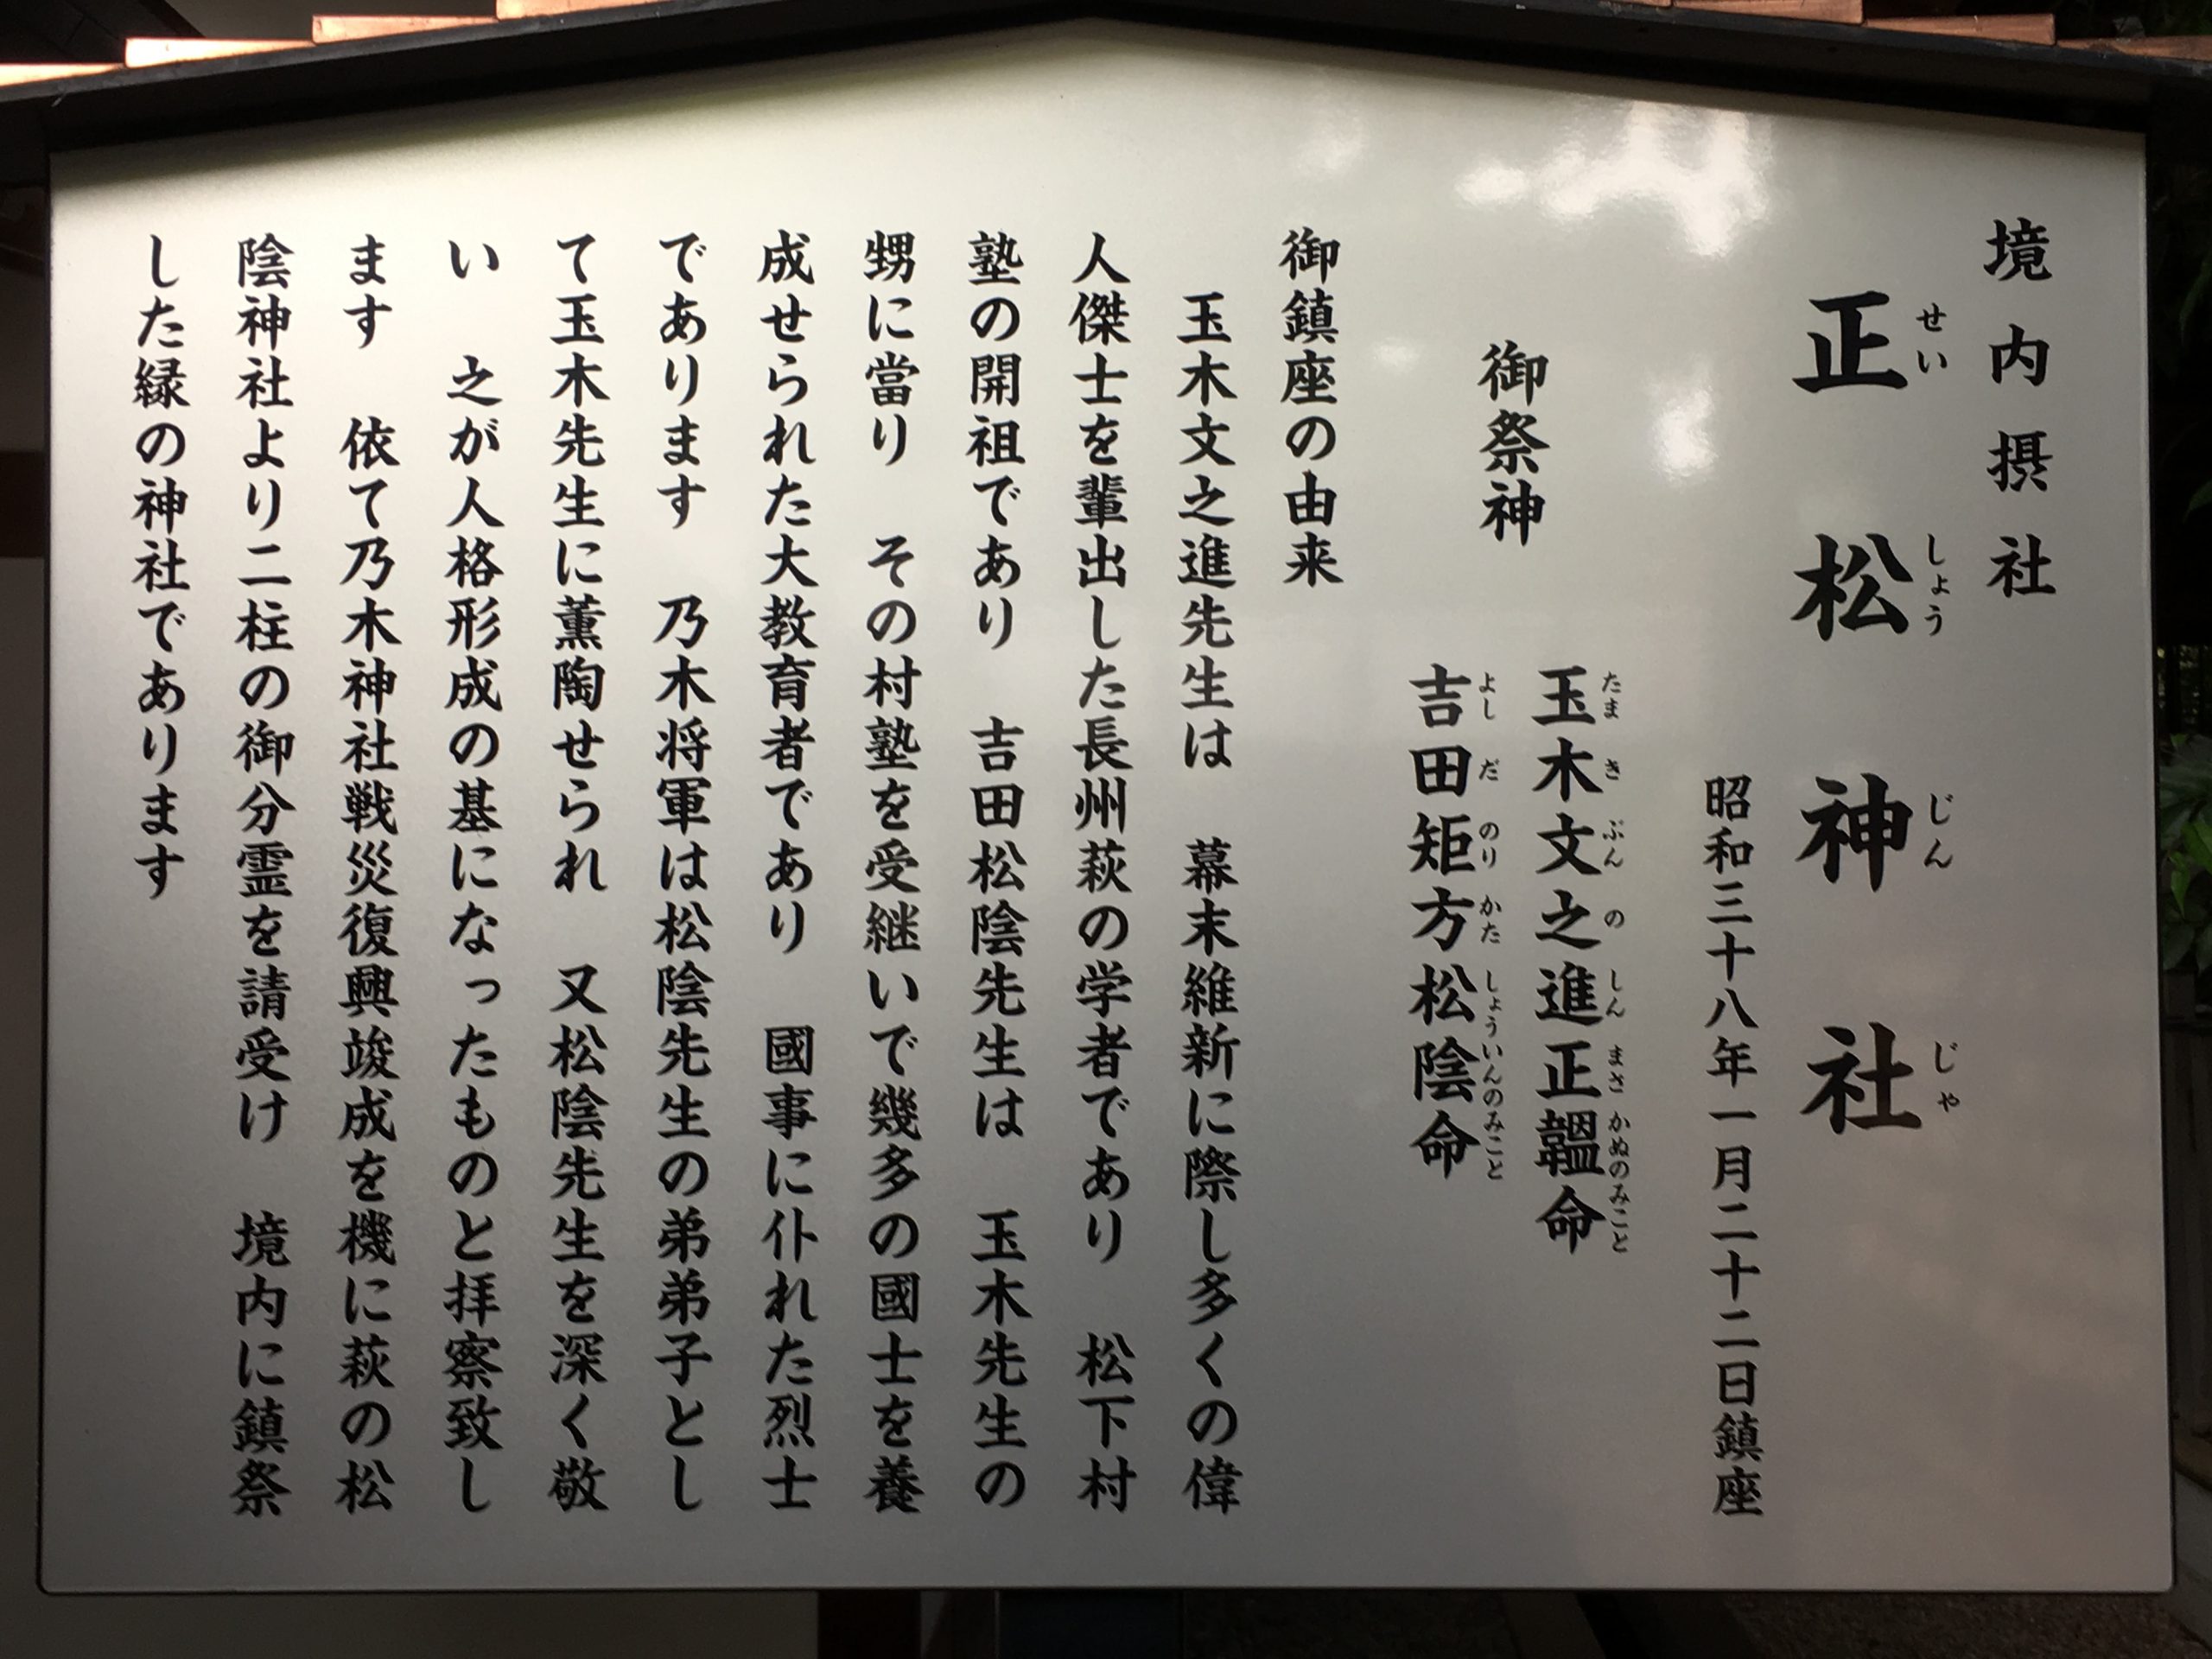 境内摂社
正松神社
せいしょうじんじゃ
昭和三十八年一月二十二日鎮座
御祭神
玉木文之進正韞命
たまきぶんのしんまさかぬのみこと
吉田矩方松陰命
よしだのりかたしょういんのみこと
御鎮座の由来
玉木文之進先生は　幕末維新に際し多くの偉
人傑士を輩出した長州萩の学者であり　松下村
塾の開祖であり　吉田松陰先生は　玉木先生の
甥に當り　その村塾を受継いで幾多の國士を養
成せられた大教育者であり　國事に仆れた烈士
であります　乃木将軍は松陰先生の弟弟子とし
て玉木先生に薫陶せられ　又松陰先生を深く敬
い　之が人格形成の基になったものと拝察致し
ます　依て乃木神社戦災復興竣成を機に萩の松
陰神社より二柱の御分霊を請受け　境内に鎮祭
した縁の神社であります